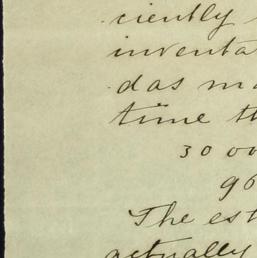 ciently
inventa
das ma
time th
30 00
96
The est
actually